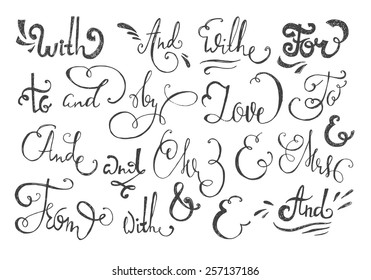 With And Withe For
to and by Love To
And and Mr & Mrs &
From withe & & And
shutterstock.com · 257137186